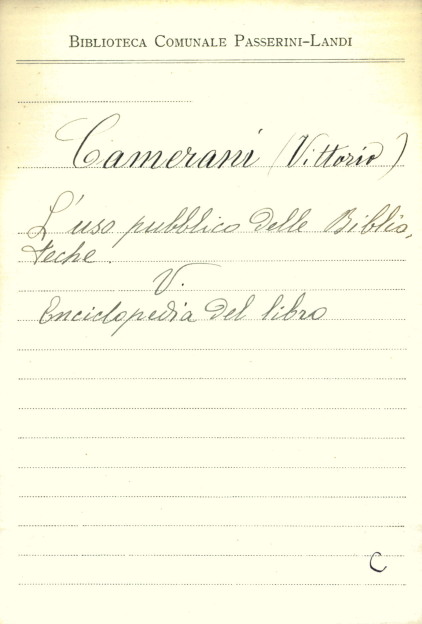 BIBLIOTECA COMUNALE PASSERINI-LANDI
Camerani (Vittorio)
L'uso pubblico delle Biblio,
teche.
V.
Enciclopedia del libro
C